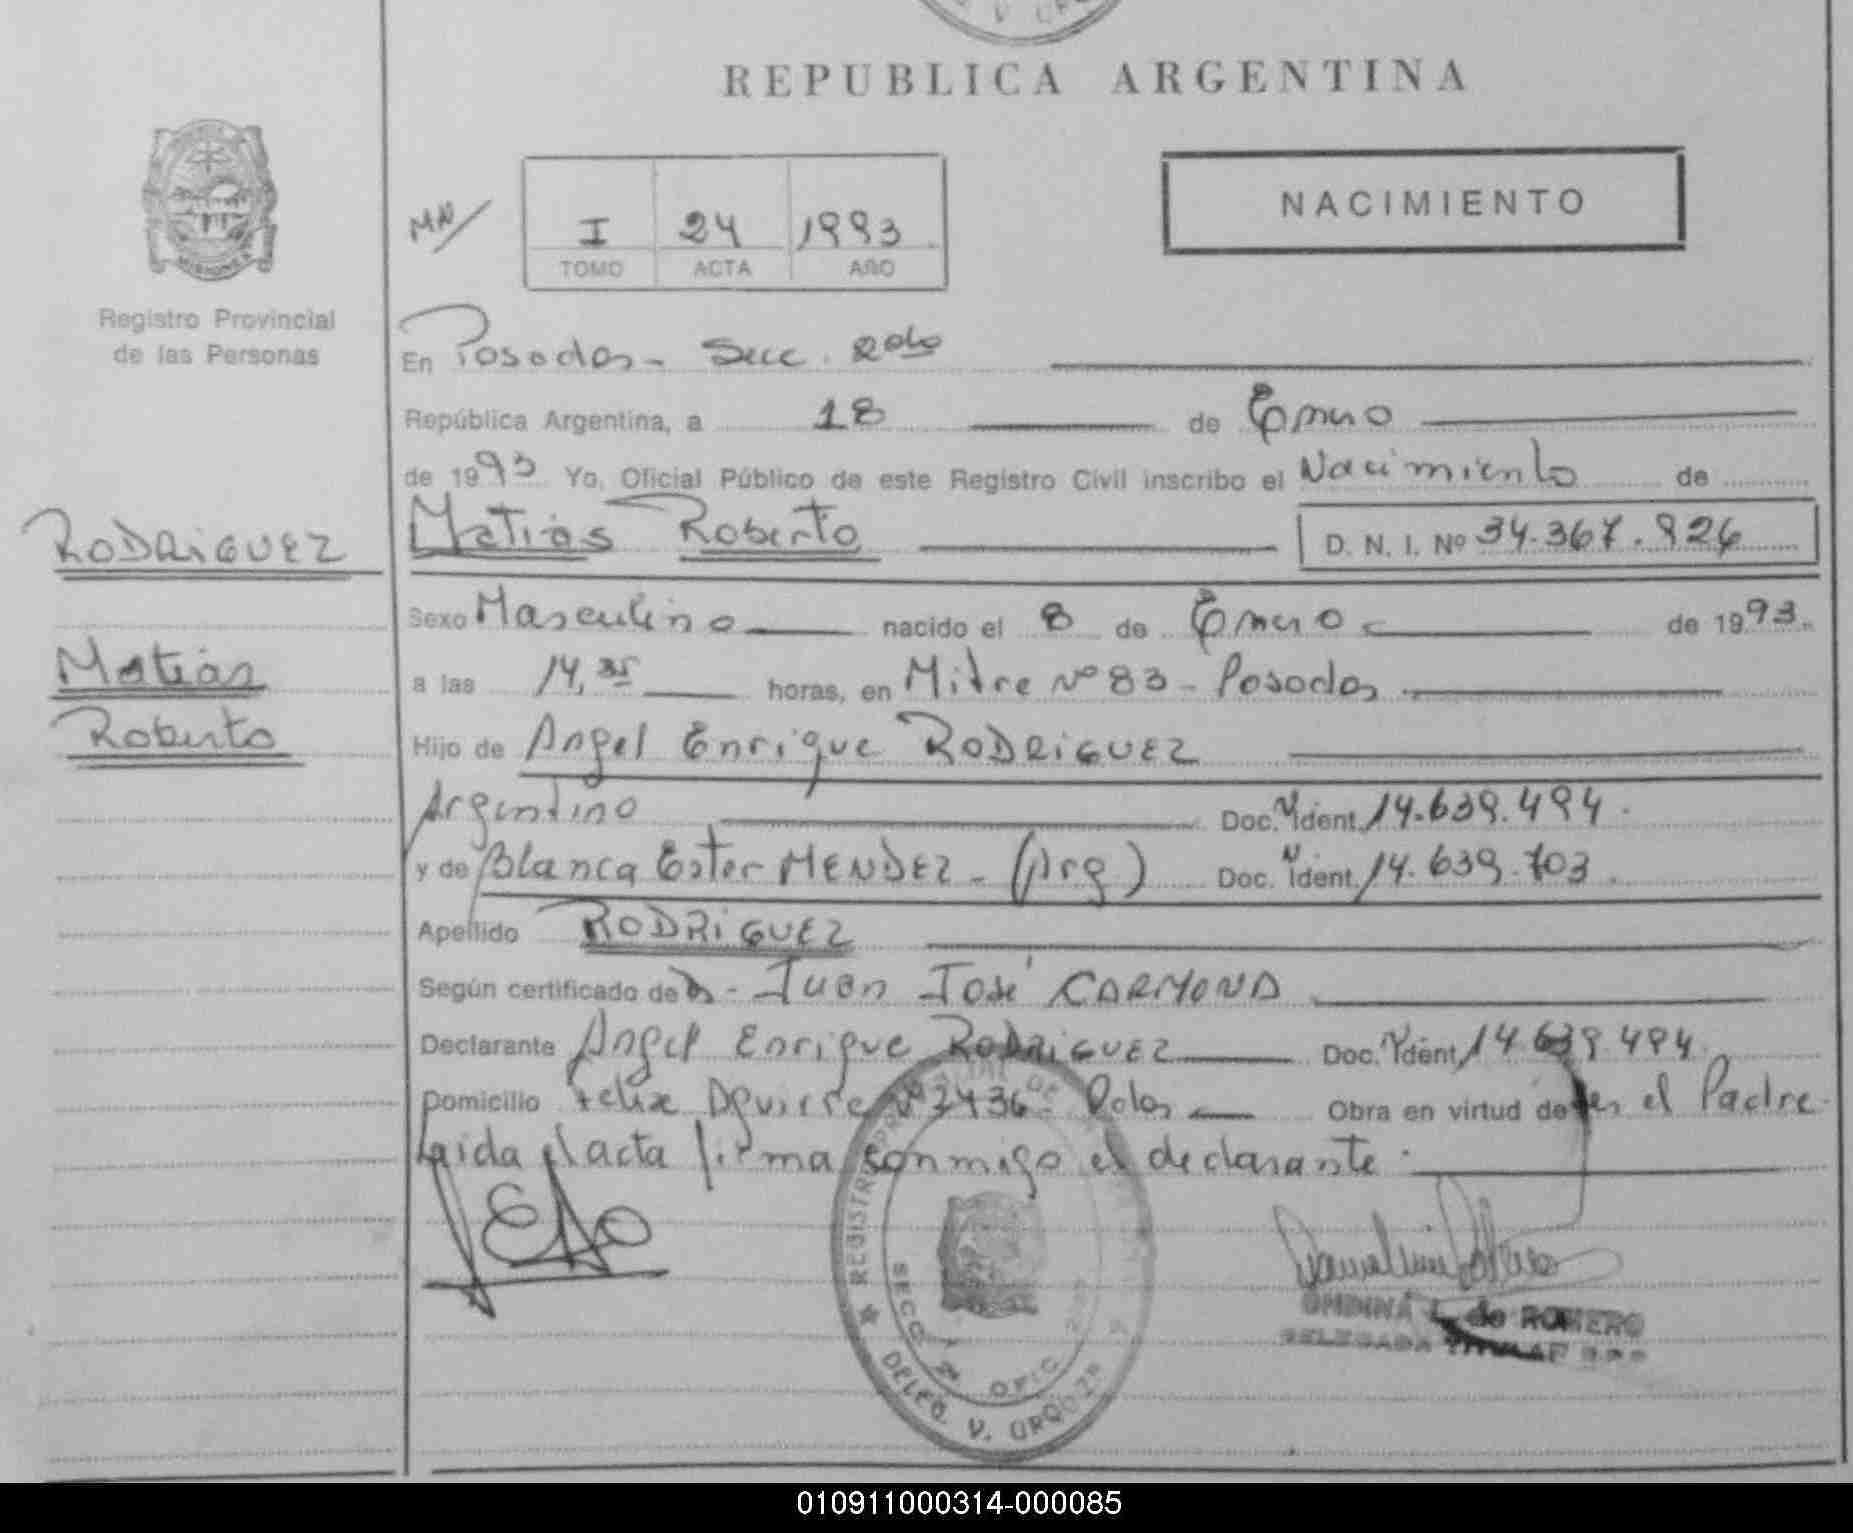 REPUBLICA ARGENTINA
MISIONES
Registro Provincial
de las Personas
I 24 1993
TOMO ACTA AÑO
NACIMIENTO
En Posadas - Secc. 2da
República Argentina, a 18 de Enero
de 1993 Yo, Oficial Público de este Registro Civil inscribo el Nacimiento de
RODRIGUEZ
Matias Roberto D. N. I. Nº 34.367.826
Matias
Roberto
Sexo Masculino nacido el 8 de Enero de 1993.
a las 14,35 horas, en Mitre Nº 83 - Posadas
Hijo de Angel Enrique RODRIGUEZ
Argentino Doc. Ident. 14.639.494.
y de Blanca Ester MENDEZ - (Arg) Doc. Ident. 14.639.703.
Apellido RODRIGUEZ
Según certificado de Dr - Juan José CARMONA
Declarante Angel Enrique RODRIGUEZ Doc. Ident. 14.639.494.
Domicilio Felix Aguirre Nº 2436 - Pdas Obra en virtud de ser el Padre.
Leida el acta firma conmigo el declarante.
REGISTRO
SECC. 2ª OFIC.
DELEG. V. URQUIZA
de ROMERO
DELEGADA TITULAR
010911000314-000085